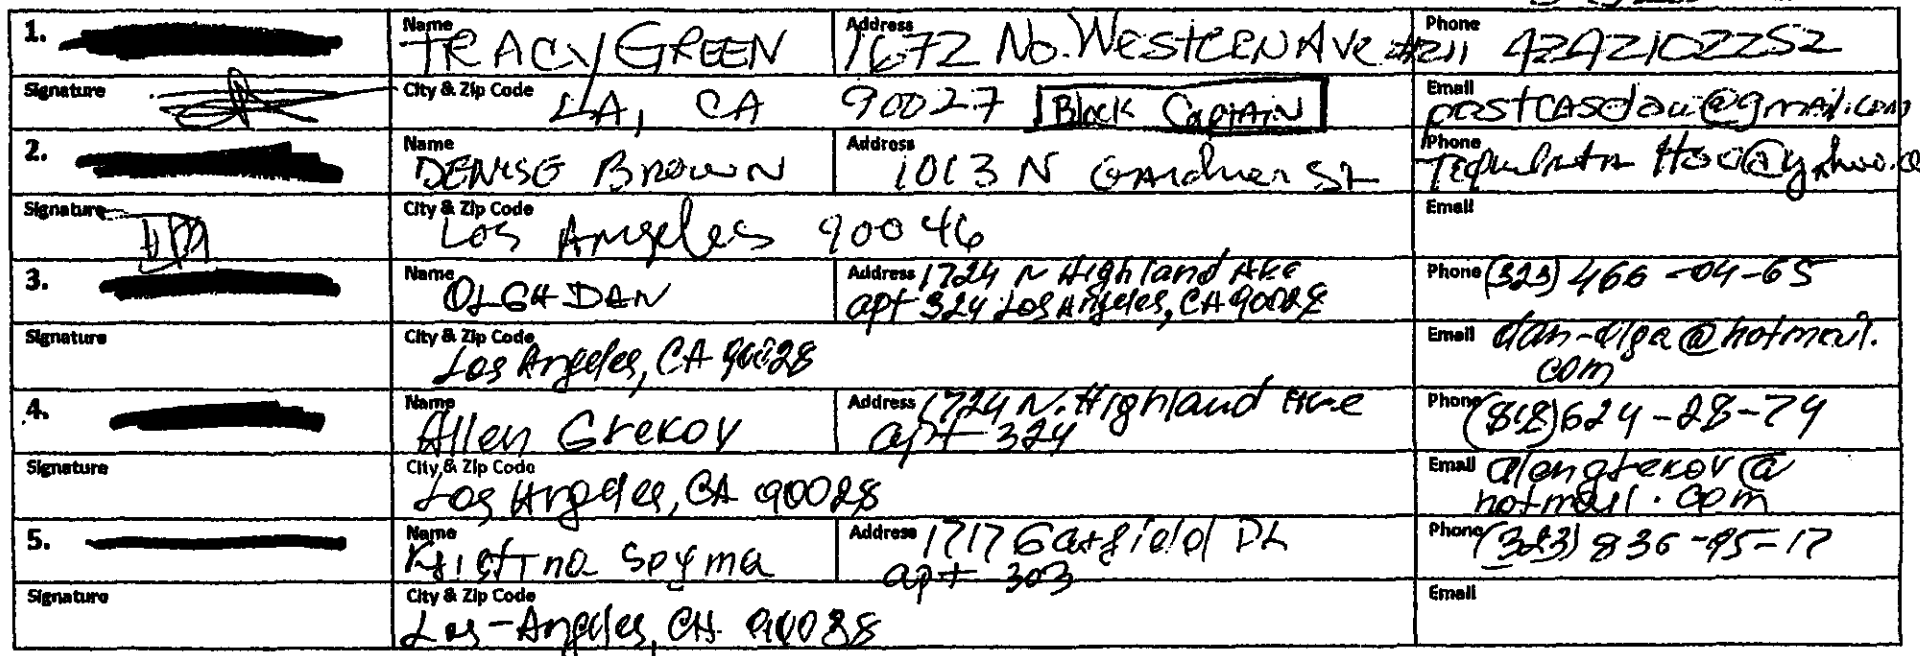 1. Name TRACY GREEN Address 1672 No. WESTERN Ave #211 Phone 4242102252
Signature City & Zip Code LA, CA 90027 Block CAPTAIN Email @gmail.com
2. Name DENISE BROWN Address 1013 N GARdner St Phone
Signature City & Zip Code Los Angeles 90046 Email
3. Name OLGA DAN Address 1724 N Highland Ave Phone (323) 466-04-65
apt 324 Los Angeles, CA 90028
Signature City & Zip Code Los Angeles, CA 90028 Email dan-olga@hotmail.
com
4. Name Allen Grekov Address 1724 N. Highland Ave Phone (818) 624-28-74
apt 324
Signature City & Zip Code Los Angeles, CA 90028 Email alengrekov@
hotmail.com
5. Name Kristina Address 1717 Garfield PL Phone (323) 836-95-17
apt 303
Signature City & Zip Code Los-Angeles, CA Email